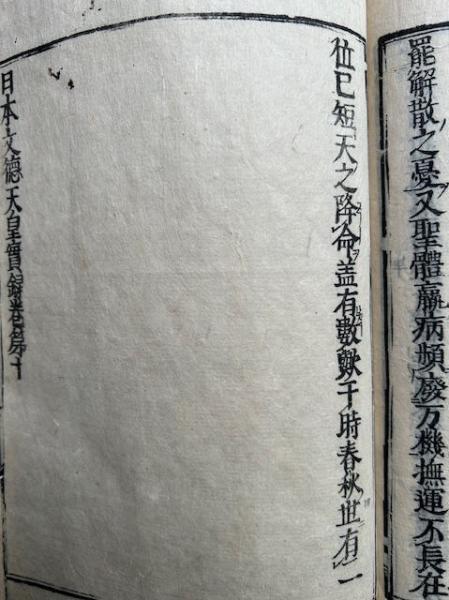 罷解散之憂又聖體羸病頻廢万機撫運不長在
位已短天之降命盖有數歟于時春秋世有二
日本文德天皇實録卷第十